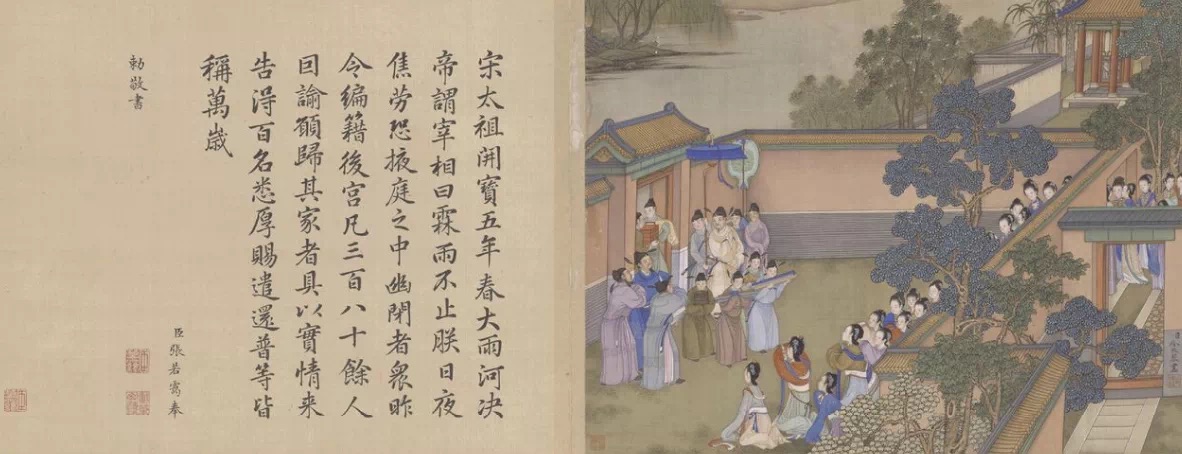 宋太祖開寶五年春大雨河决
帝謂宰相曰霖雨不止朕日夜
焦勞恐掖庭之中幽閉者衆昨
令編籍後宮凡三百八十餘人
囙諭願歸其家者具以實情来
告得百名悉厚賜遣還普等皆
稱萬歲
臣張若靄奉
勅敬書